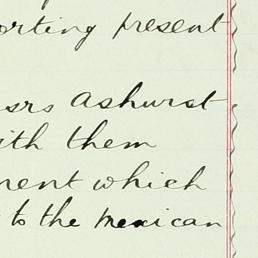 orting present
srs Ashurst
ith them
ment which
to the Mexican